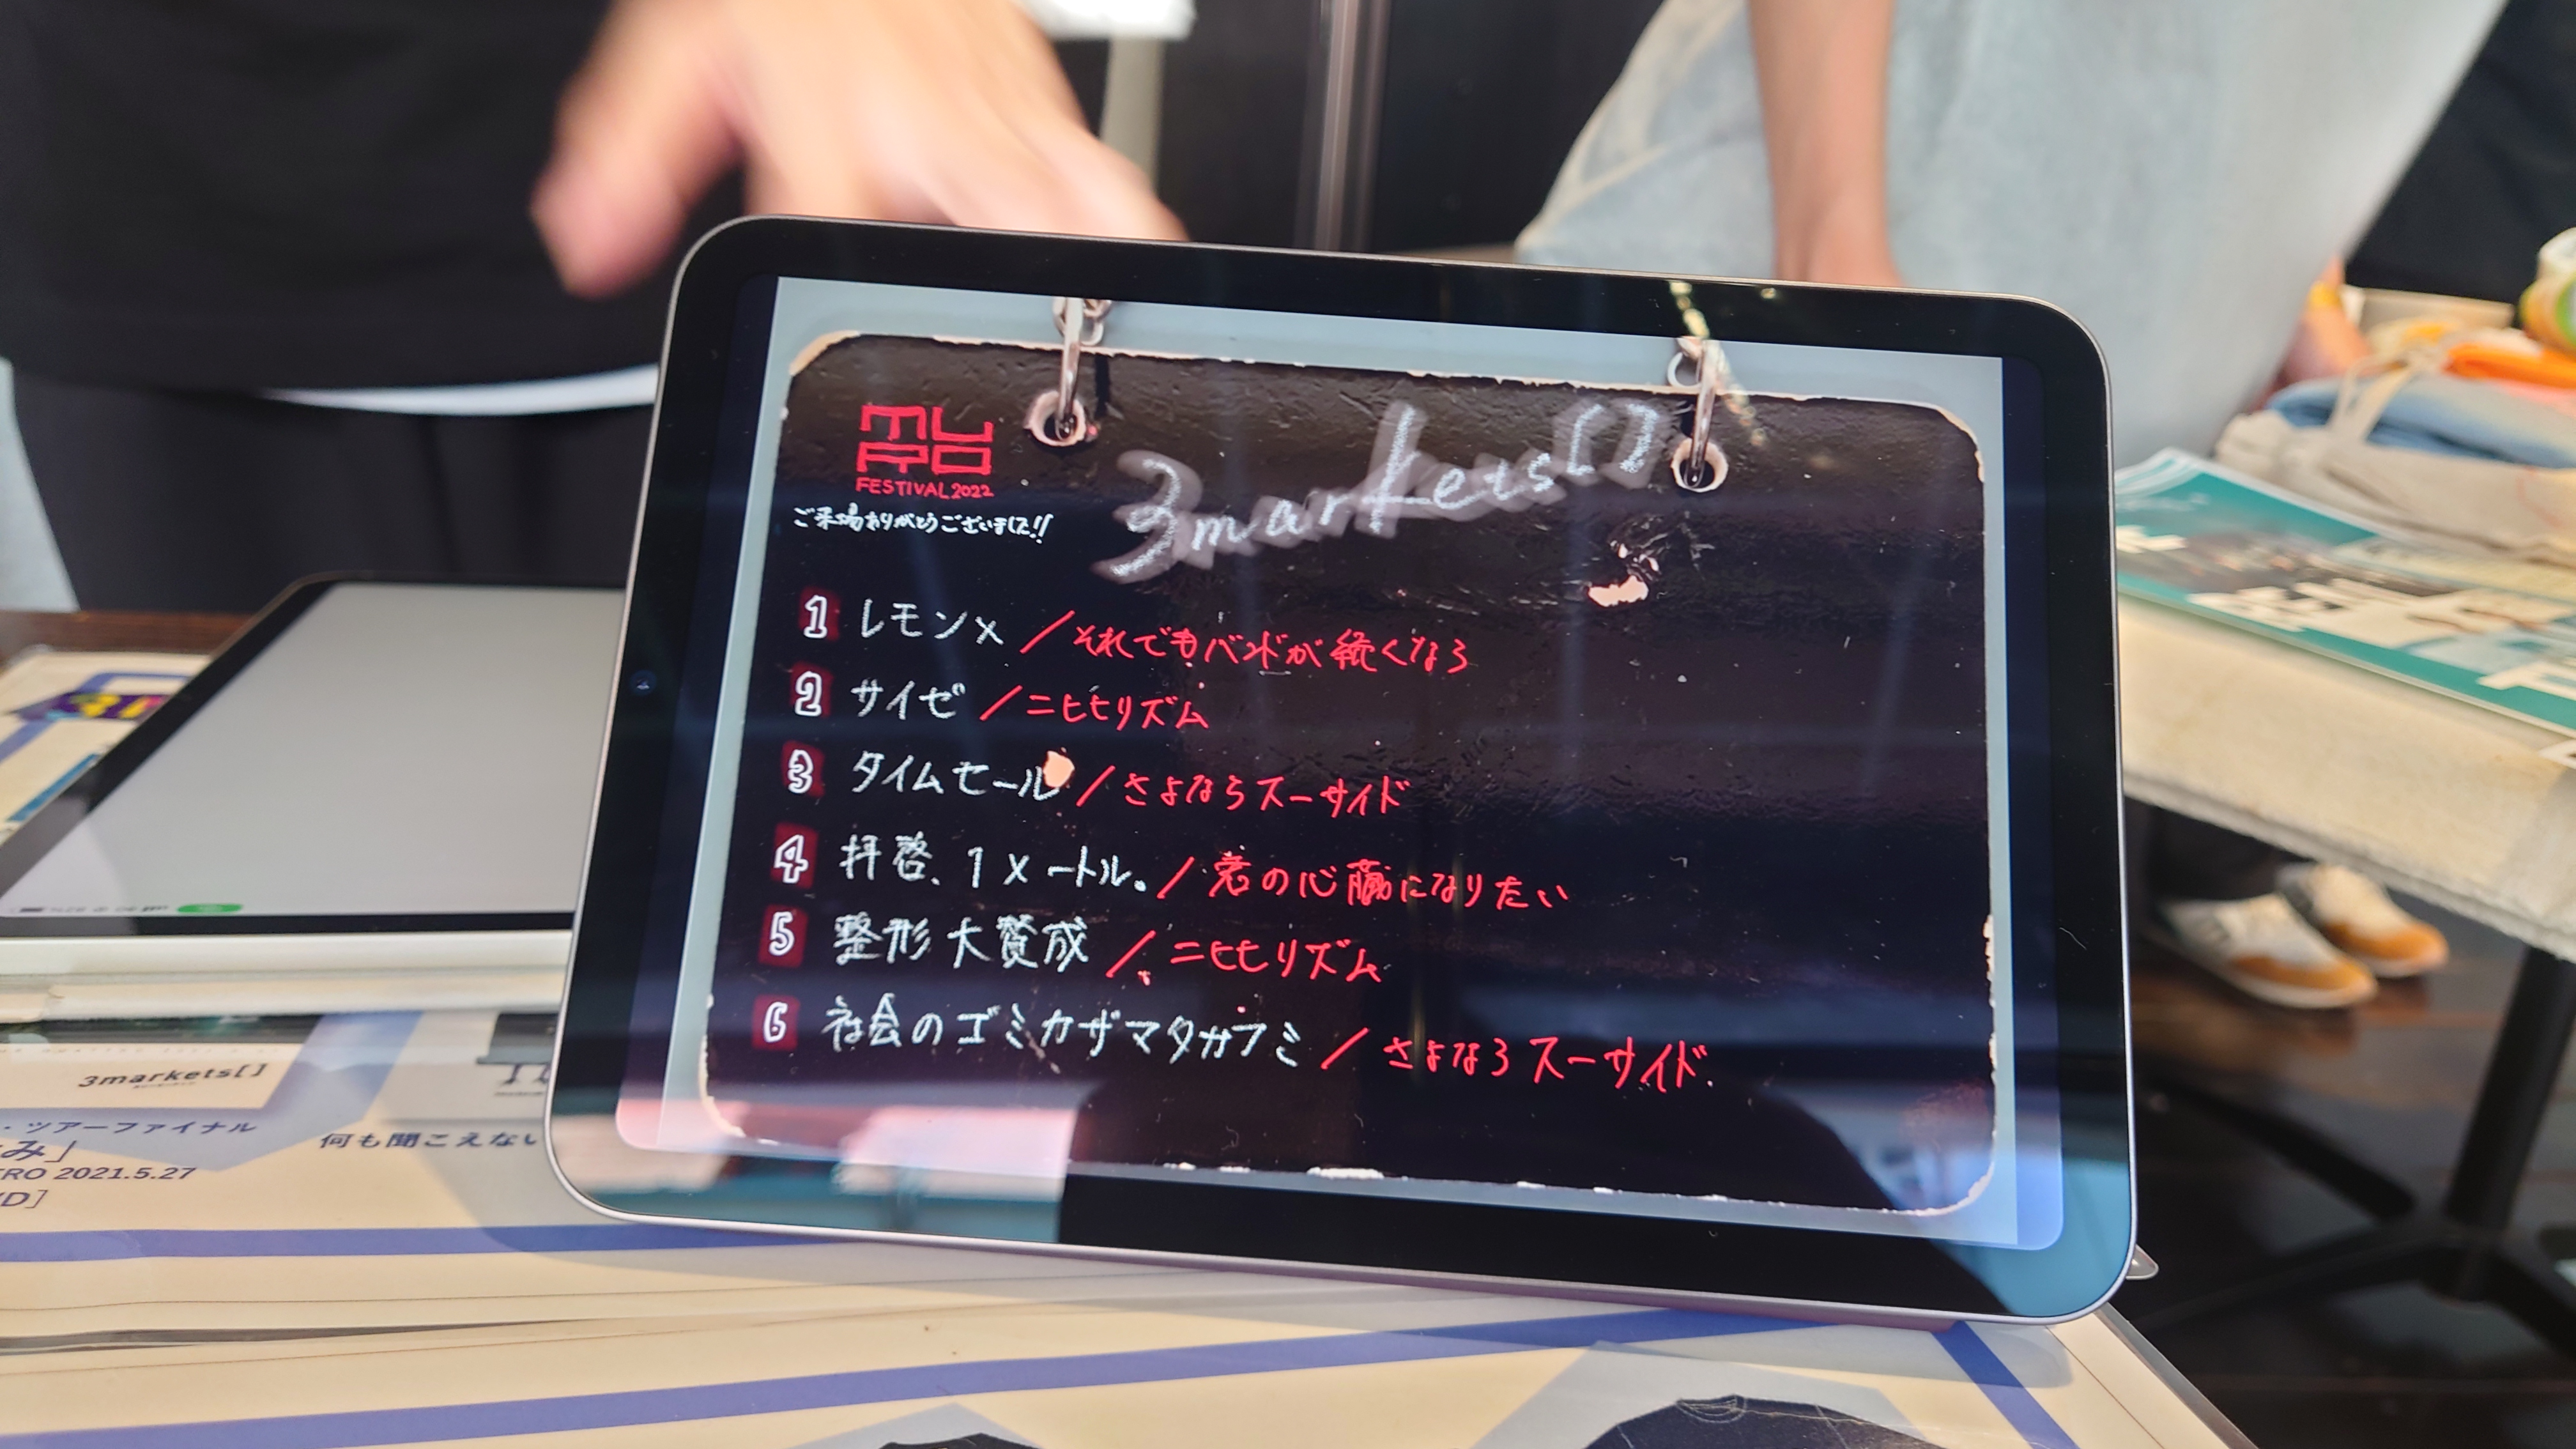 MURO
FESTIVAL2022
ご来場ありがとうございました!!
3markets[]
1 レモン× / それでもバンドが続くなら
2 サイゼ / ニヒヒリズム
3 タイムセール / さよならスーサイド
4 拝啓、1メートル。 / 君の心臓になりたい
5 整形大賛成 / ニヒヒリズム
6 社会のゴミカザマタカフミ / さよならスーサイド
3markets[]
・ツアーファイナル
み」
RO 2021.5.27
D]
何も聞こえない